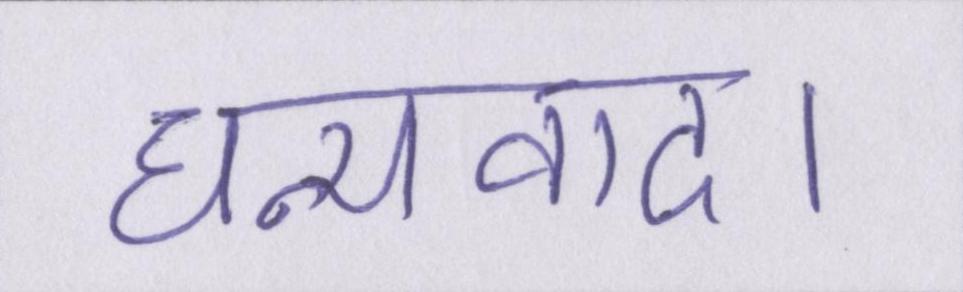 धन्यवाद।